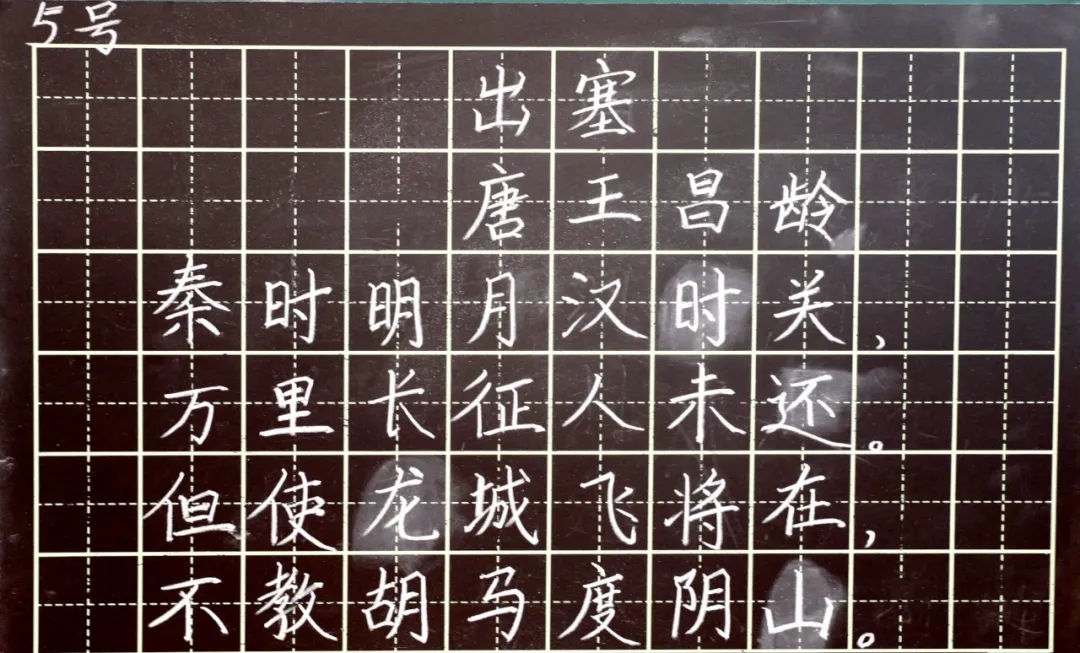 5号
出塞
唐王昌龄
秦时明月汉时关，
万里长征人未还。
但使龙城飞将在，
不教胡马度阴山。